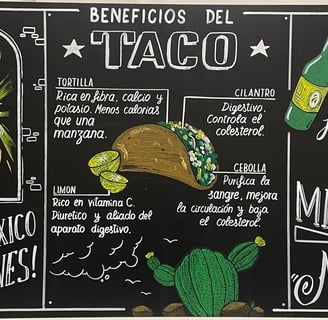 BENEFICIOS DEL
TACO
TORTILLA
Rica en fibra, calcio y
potasio. Menos calorías
que una
manzana.
CILANTRO
Digestivo.
Controla el
colesterol.
LIMON
Rico en vitamina C.
Diuretico y aliado del
aparato digestivo.
CEBOLLA
Purifica la
sangre, mejora
la circulación y baja
el colesterol.
XICO
NES!